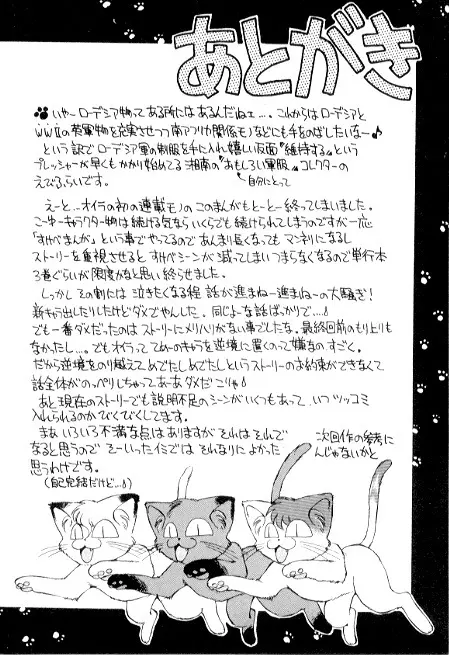 あとがき
いやーローデシア物ってある所にはあるんだねェ…。これからはローデシアと
WWⅡの英軍物を充実させつつ南アフリカ関係モノなどにも手をのばしたいなー♪
という訳でローデシア軍の制服を手に入れ嬉しい反面"維持する"という
プレッシャーが早くもかかり始めてる湘南の"おもしろい軍服"コレクターの
えびふらいです。
自分にとって
えーと…オイラの初の連載モノのこのまんがもとーとー終ってしまいました。
こーゆーキャラクター物は続ける気ならいくらでも続けられてしまうのですが一応
「すけべまんが」という事でやってるのであんまり長くなってもマンネリになるし
ストーリーを重視させると すけべシーンが減ってしまいつまらなくなるので単行本
3巻ぐらいが限度かなと思い終らせました。
しかしその割には泣きたくなる程 話が進まねー進まねーの大騒ぎ!
新キャラ出たりしたけどダメでやんした。同じよーな話ばっかりで…♪
でも一番ダメだったのはストーリーにメリハリがない事でしたな。最終回前のもり上りも
なかったし…。でもオイラって てめーのキャラを逆境に置くのって嫌なのすごく。
だから逆境をのり越えてめでたしめでたしというストーリーのお約束ができなくて
話全体がのっぺりしちゃってあーあダメだこりゃ♪
あと現在のストーリーでも説明不足のシーンがいくつもあって、いつツッコミ
入れられるのかびくびくしてます。
まあいろいろ不満な点はありますが それはそれで 次回作の参考に
なると思うので そーいったイミでは それなりに よかった んじゃないかと
思うわけです。
(自己完結だけど…♪)